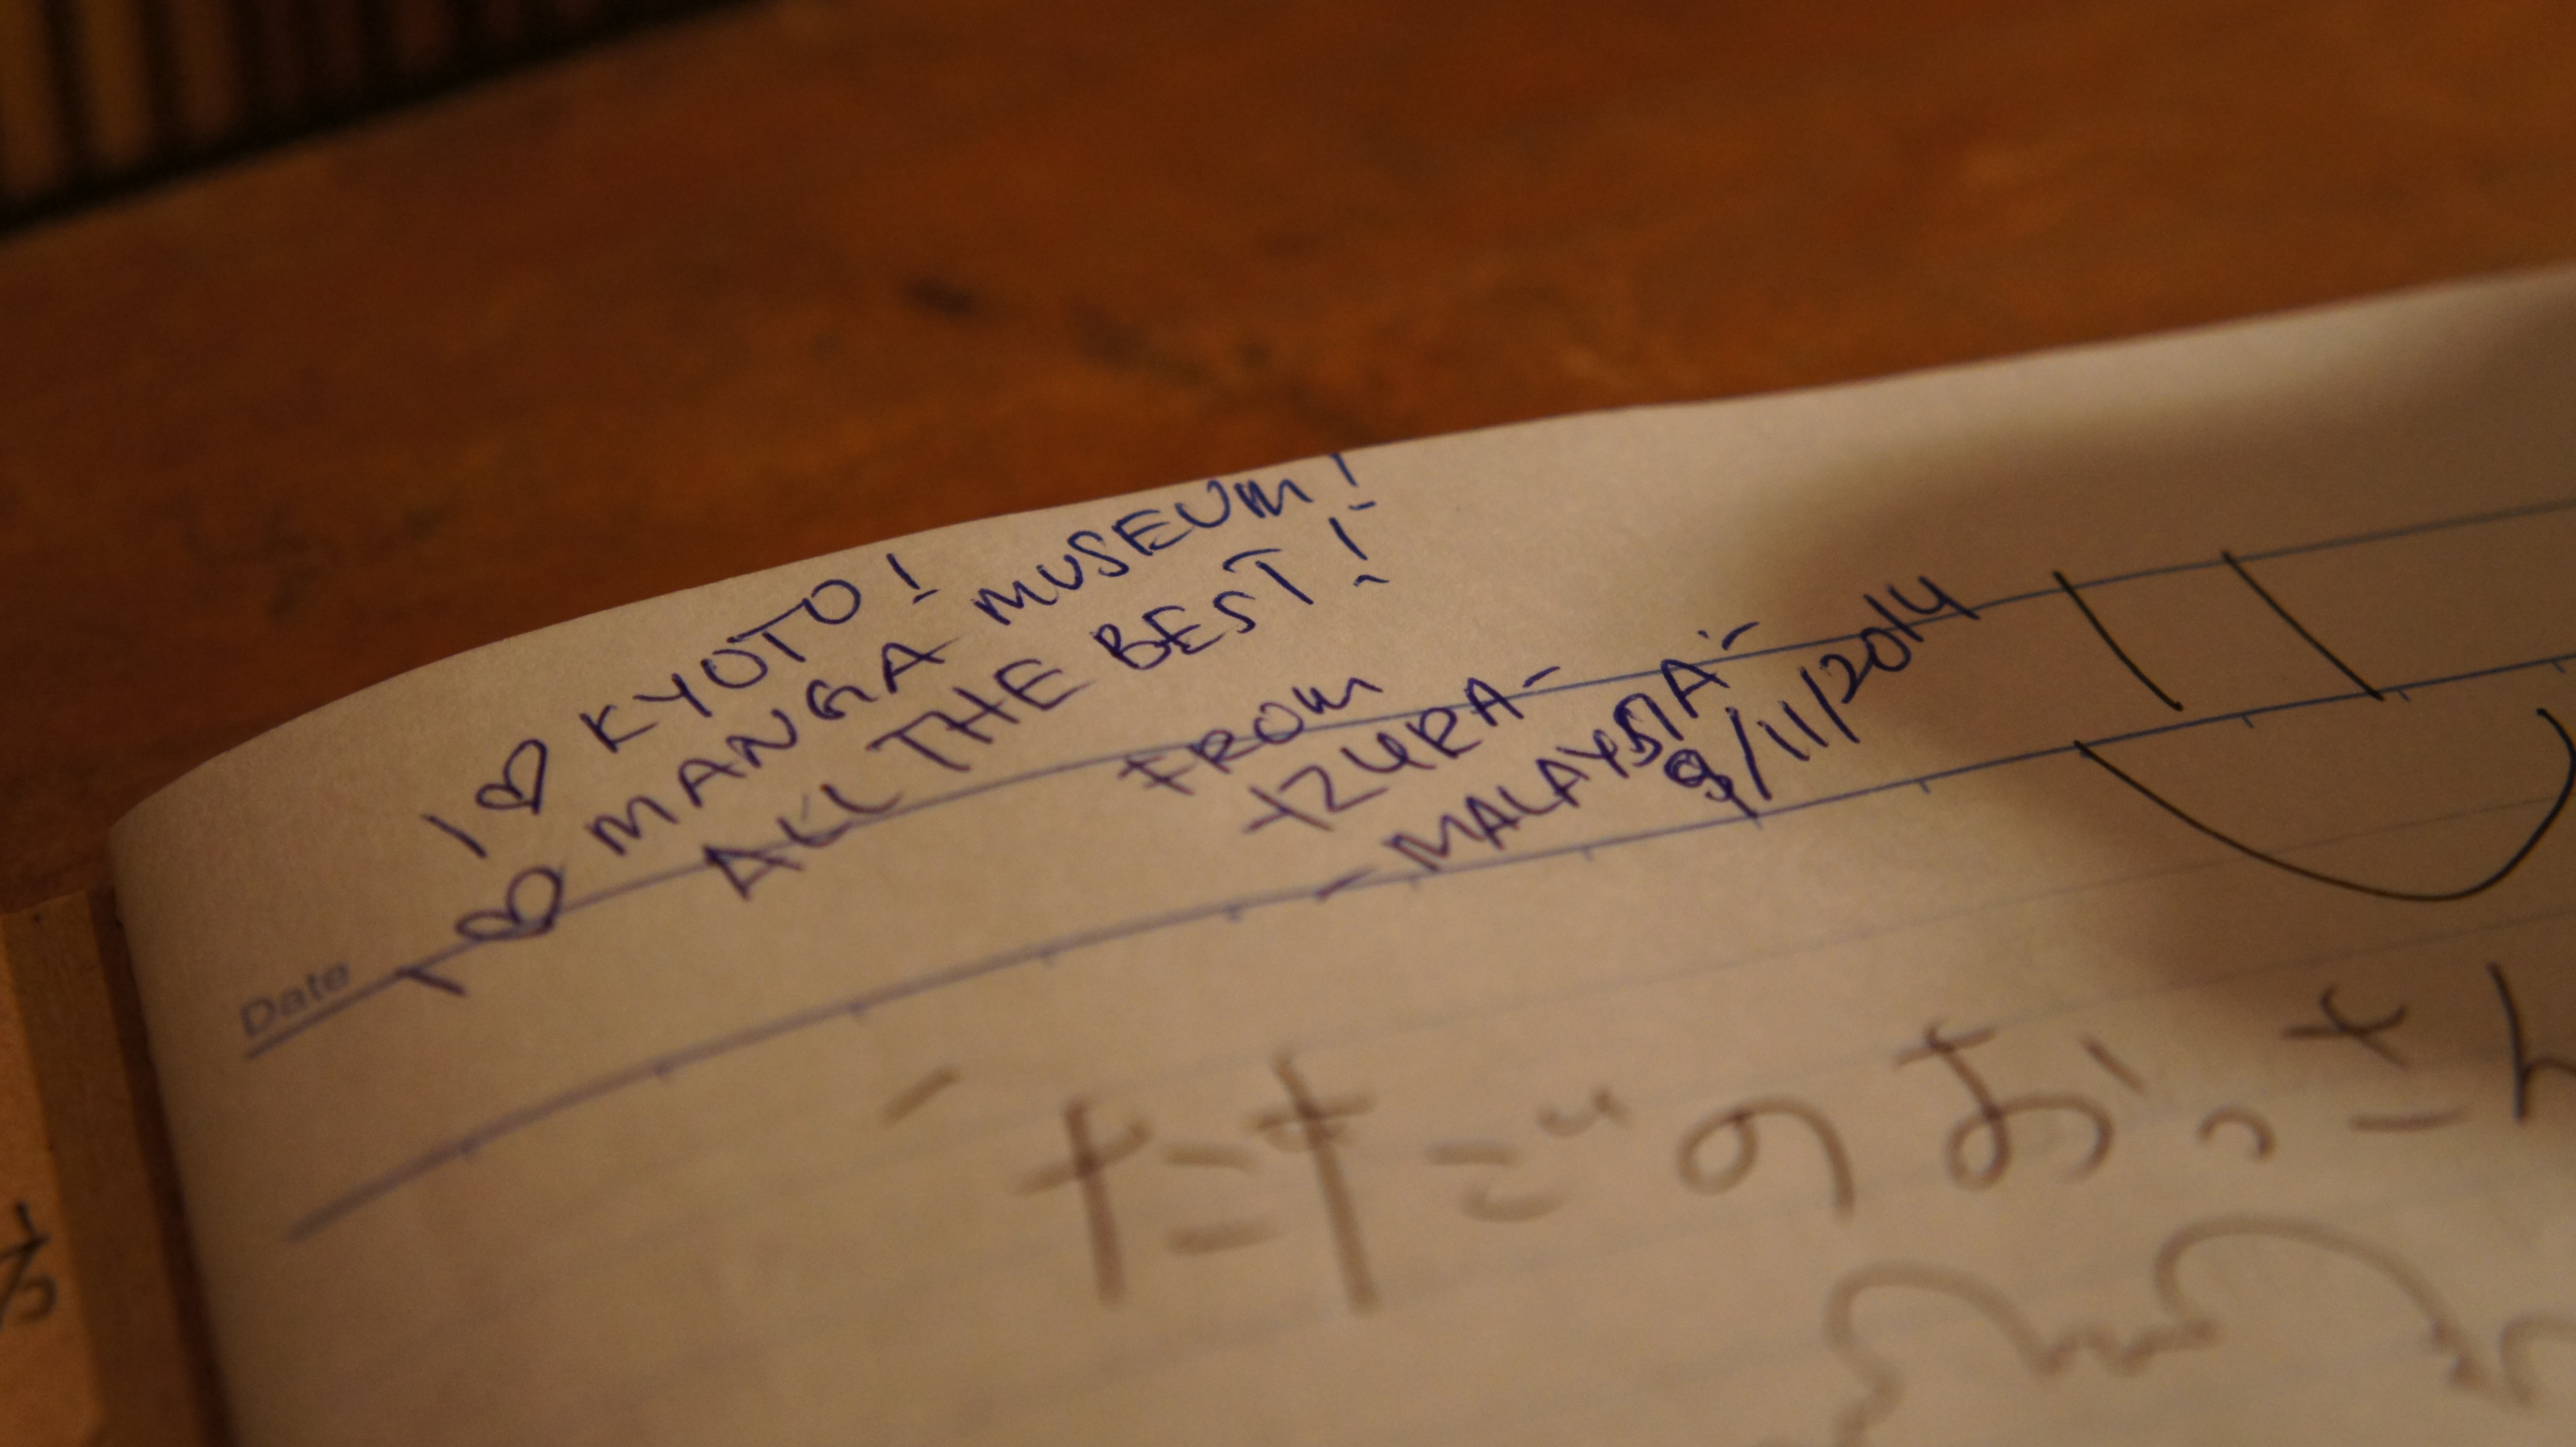 I ♡ KYOTO!
I ♡ MANGA MUSEUM!
ALL THE BEST!
FROM
AZURA-
-MALAYSIA-
9/11/2014
Date
たまごのおっさん